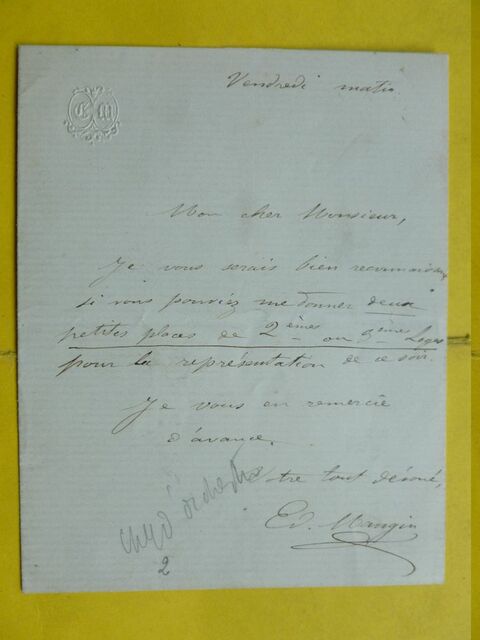 Vendredi matin
E M
Mon cher Monsieur,
Je vous serais bien reconnaissant
si vous pouviez me donner deux
petites places de 2èmes ou 3èmes Loges
pour la représentation de ce soir.
Je vous en remercie
d'avance.
Votre tout dévoué,
Ed. Mangin
chef d'orchestre
2